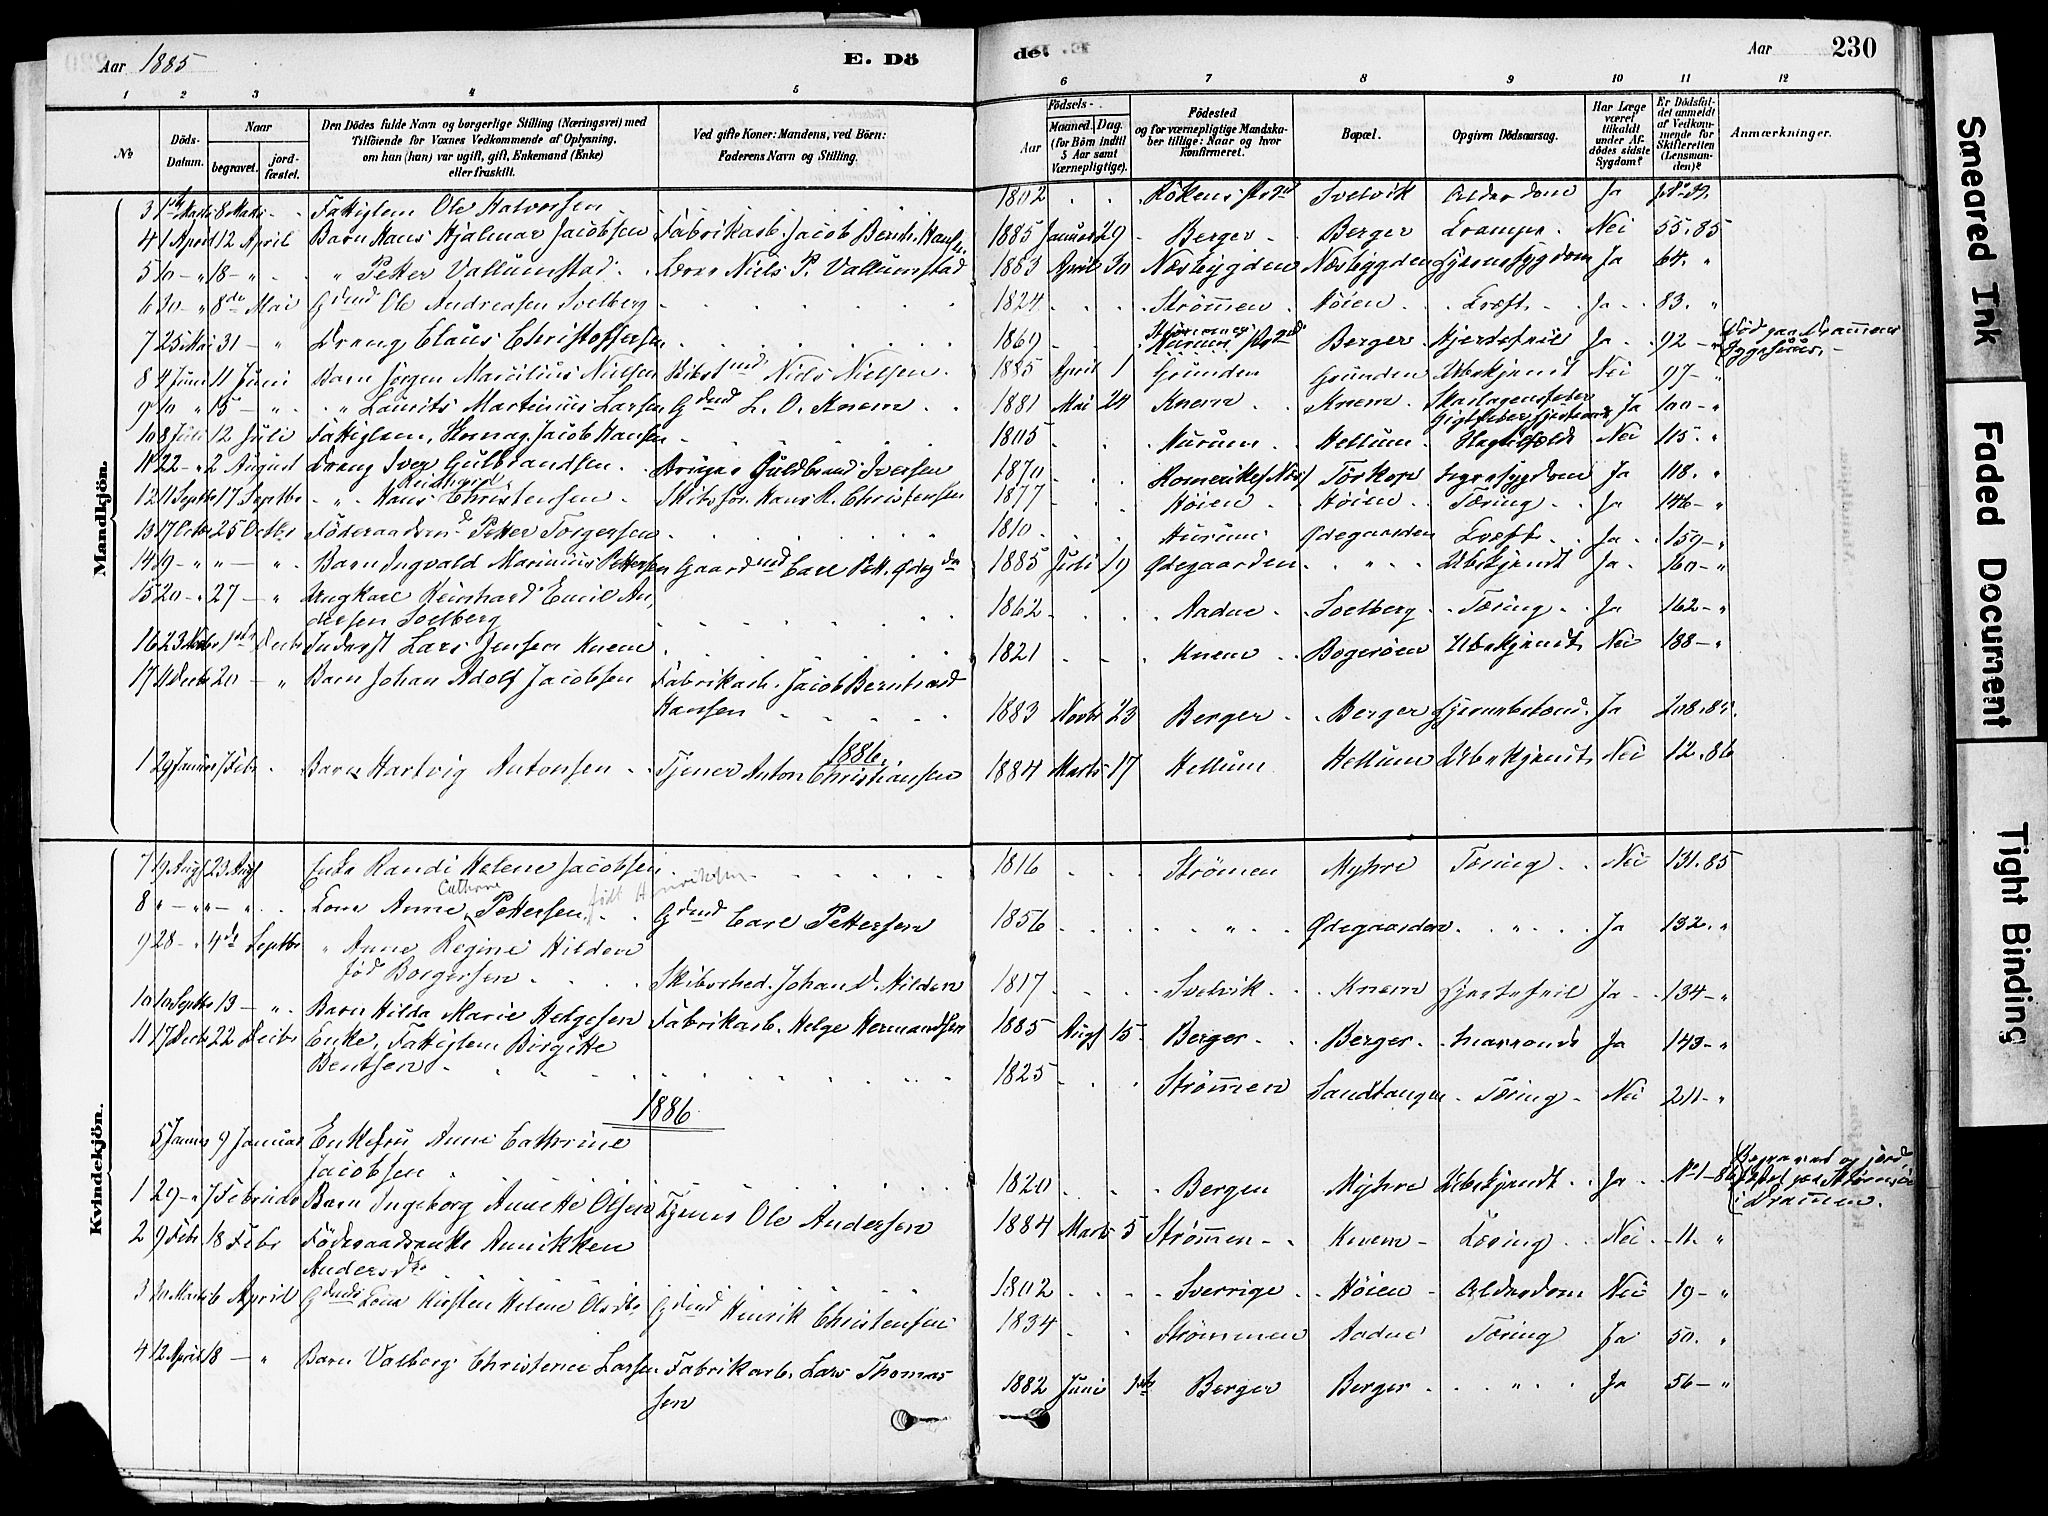 Aar 1885 E. Dö
de! Aar 230
1 2 3 4 5 6 7 8 9 10 11 12
No
Döds-Datum.
Naar
begravet.
jord-fæstet.
Den Dödes fulde Navn og borgerlige Stilling (Næringsvei) med
Tilföiende for Voxnes Vedkommende af Oplysning.
om han (hun) var ugift, gift, Enkemand (Enke)
eller fraskilt.
Ved gifte Koner: Mandens, ved Börn:
Faderens Navn og Stilling.
Födsels-
Aar
Maaned. Dag.
(for Börn indtil
5 Aar samt
Værnepligtige).
Födested
og for værnepligtige Mandska-
ber tillige: Naar og hvor
konfirmeret.
Bopæl.
Opgiven Dödsaarsag.
Har Læge
været
tilkaldt
under Af-
dödes sidste
Sygdom?
Er Dödsfal-
det anmeldt
af Vedkom-
mende for
Skifteretten
(Lensman-
den)?
Anmærkninger.
Mandkjön.
3 1ste Marts 8 Marts Fattiglem Ole Halvorsen 1802 Rökens Svelvik Alderdom Ja
4 1 April 12 April Barn Hans Hjalmar Jacobsen Fabrikarb. Jacob Bernh. Hansen 1885 Januar 29 Berger Berger Krampe Nei 55.85
5 10 - " 18 - " " Petter Vallumstad Lærer Niels P. Vallumstad 1883 April 30 Næsbygden Næsbygden Hjernesygdom Ja 64. "
6 30 - " 8de Mai Gdmd Ole Andreasen Svelberg 1824 Strømmen Høien Kræft Ja 83. "
7 25 Mai 31 - " Dreng Claus Christoffersen 1869 Strømmens Hurum Berger Hjertefeil Ja 92 - " Död paa Drammens Sygehuus.
8 4 Juni 11 Juni Barn Jørgen Marcilius Nielsen Niels Nielsen 1885 April 1 Grunden Grunden Ubekjendt Nei 97 - "
9 10 " 15 - " " Laurits Martinius Larsen Gdmd L. O. Knem 1881 Mai 24 Knem Knem Skarlagensfeber Gigtfeber Ja 100 - "
10 8 Juli 12 Juli Fattiglem, Jacob Hansen 1805 Hurum Hellum Nei 115. "
11 22 - " 2 August Dreng Iver Gulbrandsen Guldbrand Iversen 1870 Romerike Nes Torkop Ja 118. "
12 11 Septbr 17 Septbr " Hans Reinhard Christensen Skibsför. Hans R. Christensen 1877 Høien Høien Tæring Ja 146 - "
13 17 Octbr 25 Octbr Föderaadsmd Petter Torgersen 1810 Hurum Ødegaarden Kræft Ja 159 - "
14 19 - " " - " Barn Ingvald Marinius Pettersen Gaardmd Carl Pett. Ødegrdn 1885 Juli 19 Ødegaarden " Ubekjendt Ja 160 - "
15 20 - " 27 - " Ungkarl Reinhard Emil An-
dersen Solberg 1862 Aadne Solberg Tæring Ja 162 - "
16 23 Novbr 1ste Decbr Inderst Lars Jensen Knem 1821 Knem Bogerøen Ubekjendt Nei 188 - "
17 11 Decbr 20 - " Barn Johan Adolf Jacobsen Fabrikarb. Jacob Berntsard
Hansen 1883 Novbr 23 Berger Berger Ja 208.85.
1886.
1 29 Januar 7 Febr. Barn Hartvig Antonsen Tjener Anton Christiansen 1884 Marts 17 Hellum Hellum Ubekjendt Nei 12.86
Kvindekjön.
7 19 Aug 23 Aug Enke Randi Helene Jacobsen 1816 Strømen Myhre Tæring Nei 131.85
8 " - " " - " Kone Anne Cathrine Pettersen født Henriksen Gdmd Carl Pettersen 1856 " Ødegaarden " Ja 132. "
9 28 - " 4de Septbr " Anne Regine Hilden
fød Borgersen Skibsrhed. Johan D. Hilden 1817 Svelvik Knem Hjertefeil Ja 134 - "
10 10 Septbr 13 - " Barn Hilda Marie Helgesen Fabrikarb. Helge Hermandsen 1885 Aug 15 Berger Berger Ja 143 - "
11 17 Decbr 22 Decbr Enke, Fattiglem Birgitte
Bentsen 1825 Strømmen Sandtangen Tæring Nei 211 - "
1886
5 Januar 9 Januar Enkefru Anne Cathrine
Jacobsen 1820 Bergen Myhre Ubekjendt Ja No 1 - 86 Begravet og jord-
fæstet paa Strömsö
i Drammen.
1 29 - " 7 Februar Barn Ingeborg Annette Olsen Tjener Ole Andersen 1884 Marts 5 Strømmen Knem Tæring Nei 11. "
2 9 Febr 18 Febr Föderaadsenke Annikken
Andersdr 1802 Sverrige Høien Alderdom Nei 19 - "
3 30 Marts 6 April Gdmds Kone Kirsten Helene Olsdtr Gdmd Henrik Christensen 1834 Strømmen Aadne Tæring Ja 50. "
4 12 April 18 - " Barn Valborg Christence Larsen Fabrikarb. Lars Thomas-
sen 1882 Juni 1ste Berger Berger " Ja 56 - "
Smeared Ink
Faded Document
Tight Binding